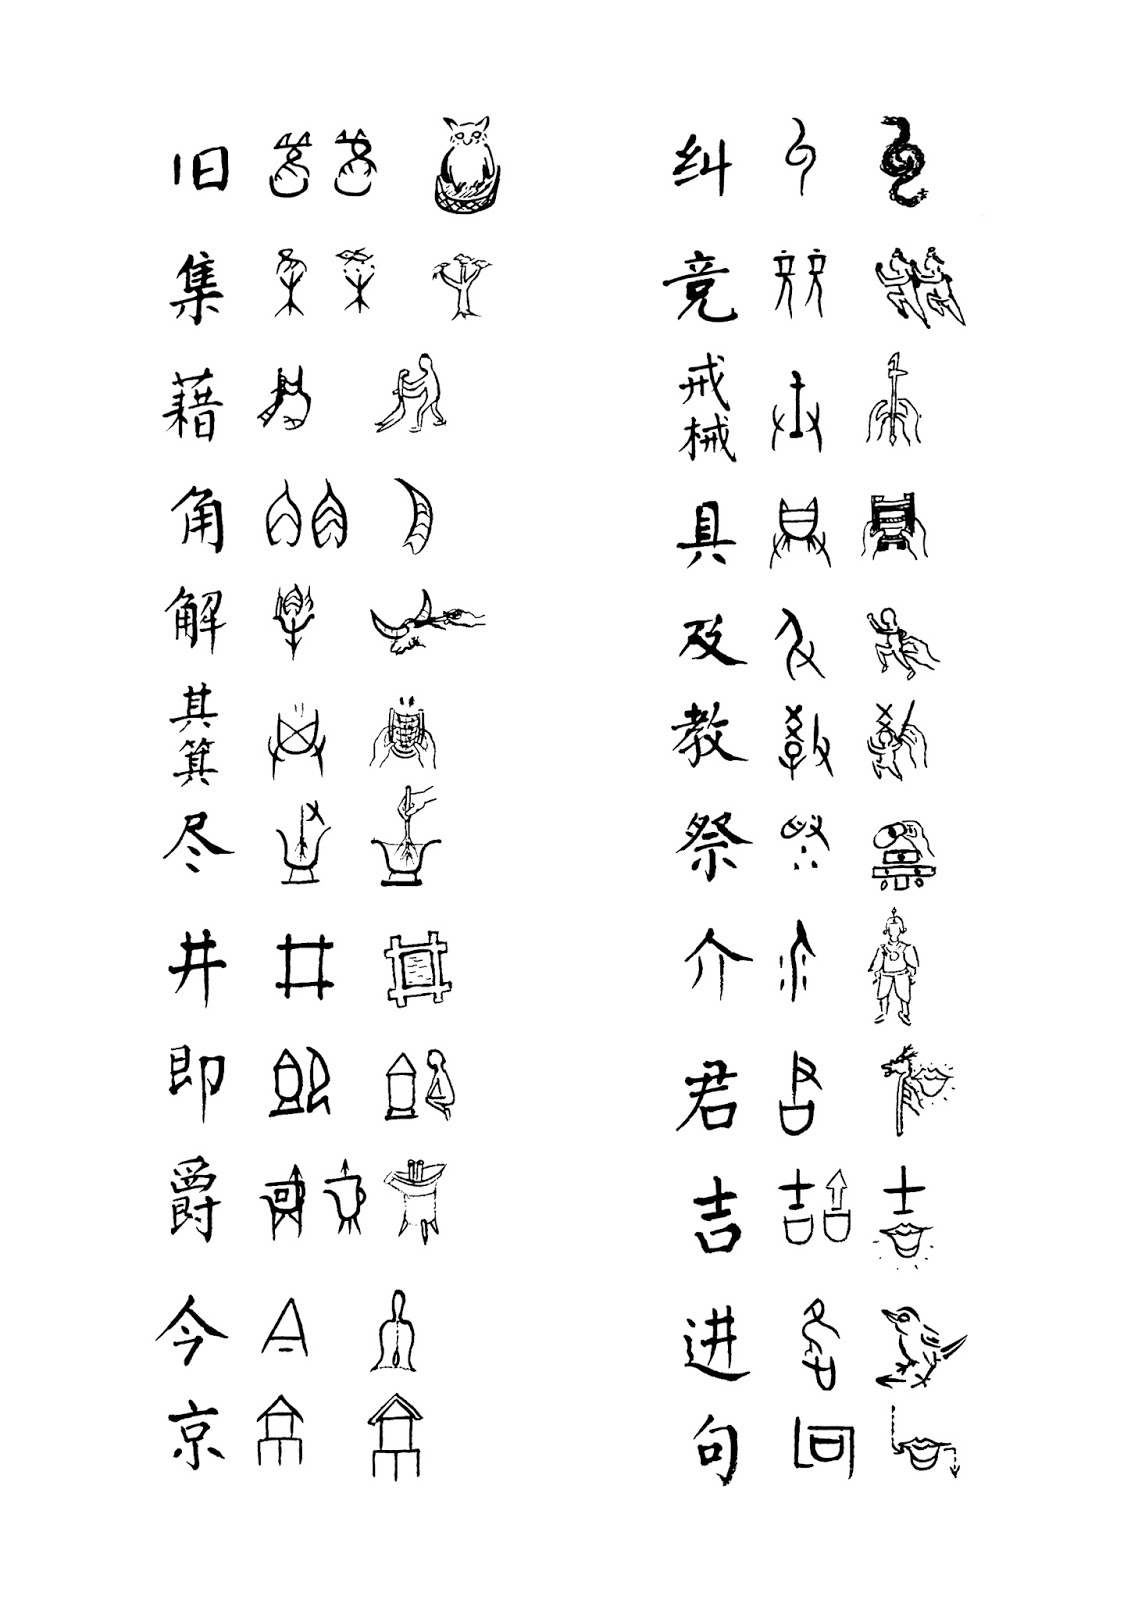 旧
集
藉
角
解
其
箕
尽
井
即
爵
今
京
纠
竞
戒
械
具
及
教
祭
介
君
吉
进
句